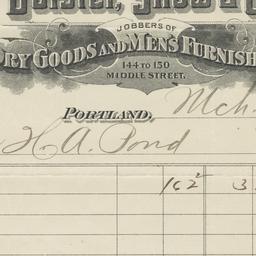 JOBBERS OF
DRY GOODS AND MEN'S FURNISH
144 TO 150
MIDDLE STREET.
PORTLAND, Mch.
H. A. Pond
162 3